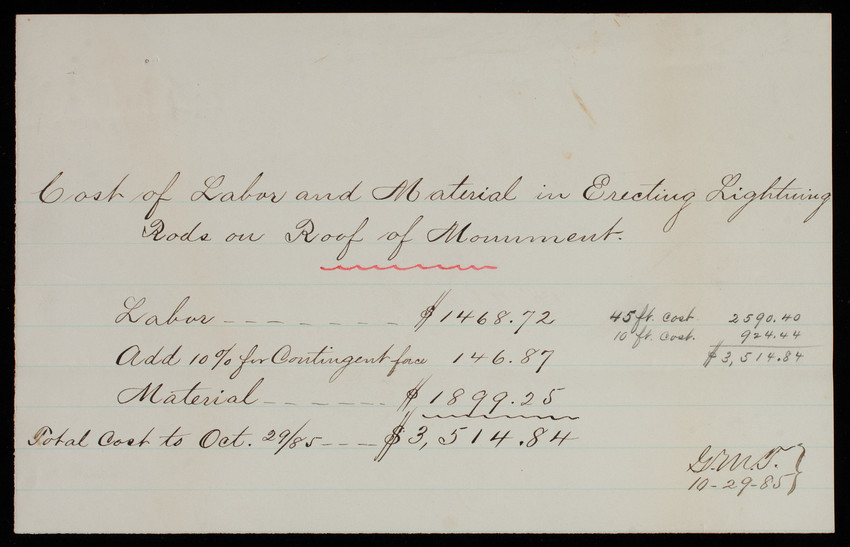 Cost of Labor and Material in Erecting Lightning
Rods on Roof of Monument.
Labor -------- $1468.72
Add 10% for Contingent force 146.87
Material ------ $1899.25
Total Cost to Oct. 29/85 --- $3,514.84
45 ft. cost 2590.40
10 ft. cost. 924.44
$3,514.84
G.M.T.
10-29-85